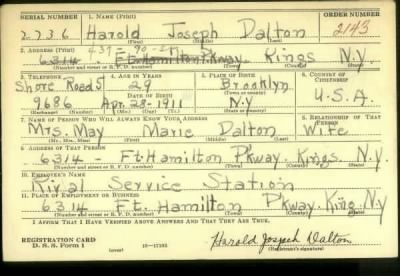 SERIAL NUMBER 1. NAME (Print) ORDER NUMBER
2736 Harold Joseph Dalton 2143
(First) (Middle) (Last)
2. ADDRESS (Print)
6314 - Ft. Hamilton Pkway. Kings N.Y.
(Number and street or R. F. D. number) (Town) (County) (State)
3. TELEPHONE 4. AGE IN YEARS 5. PLACE OF BIRTH 6. COUNTRY OF CITIZENSHIP
Shore Road 5 29 Brooklyn
DATE OF BIRTH
9686 Apr. 28 - 1911 N.Y U.S.A.
(Exchange) (Number) (Mo.) (Day) (Yr.) (State or country)
7. NAME OF PERSON WHO WILL ALWAYS KNOW YOUR ADDRESS 8. RELATIONSHIP OF THAT PERSON
Mrs. May Marie Dalton Wife
(Mr., Mrs., Miss) (First) (Middle) (Last)
9. ADDRESS OF THAT PERSON
6314 - Ft. Hamilton Pkway. Kings N.Y.
(Number and street or R. F. D. number) (Town) (County) (State)
10. EMPLOYER'S NAME
Rival Service Station
11. PLACE OF EMPLOYMENT OR BUSINESS
6314 Ft. Hamilton Pkway. King N.Y
(Number and street or R. F. D. number) (Town) (County) (State)
I AFFIRM THAT I HAVE VERIFIED ABOVE ANSWERS AND THAT THEY ARE TRUE.
REGISTRATION CARD
D. S. S. Form 1 (over) Harold Joseph Dalton
(Registrant's signature)